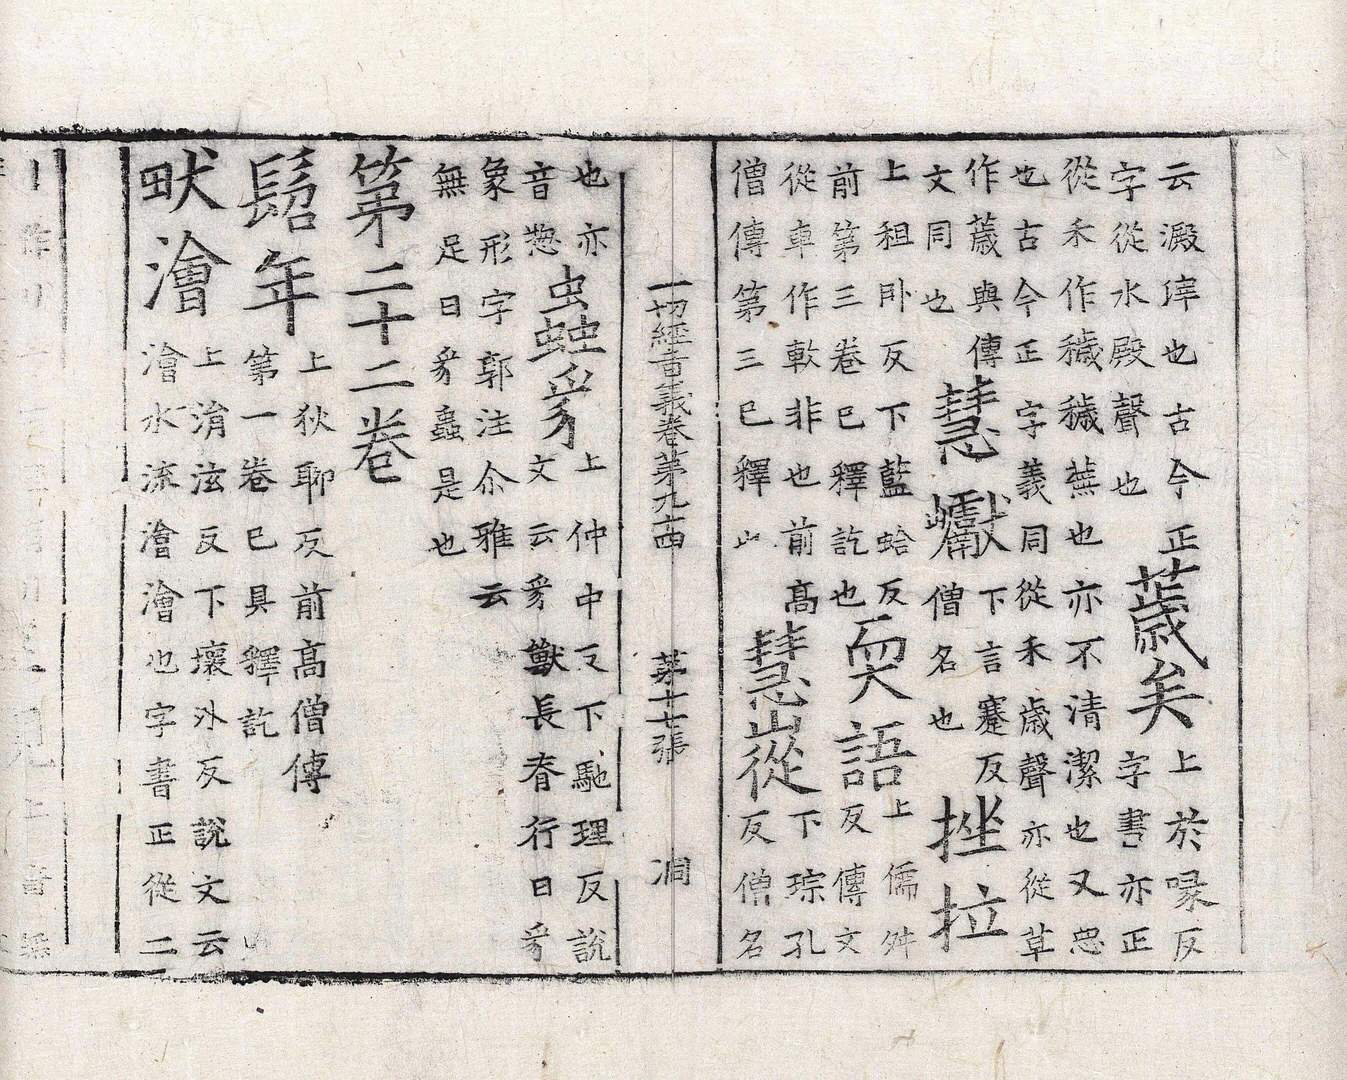 云澱滓也古今正字從水殿聲也薉矣上於喙反字書亦正
從禾作穢穢蕪也亦不清潔也又惡也古今正字義同從禾歲聲亦從草
作薉與傳文同也慧巘下言蹇反僧名也挫拉
上祖卧反下藍蛤反前第三卷已釋訖也耎語上儒舛反傳文
從車作軟非也前高僧傳第三已釋慧嵷下琮孔反僧名
一切經音義卷第九十四 第十七張 洞
也亦音惣蟲豸上仲中反下馳理反說文云豸獸長脊行曰豸
象形字郭注尒雅云無足曰豸蟲是也
第二十二卷
髫年上狄聊反前高僧傳第一卷已具釋訖
畎澮上涓泫反下壞外反說文云澮水流澮澮也字書正從二